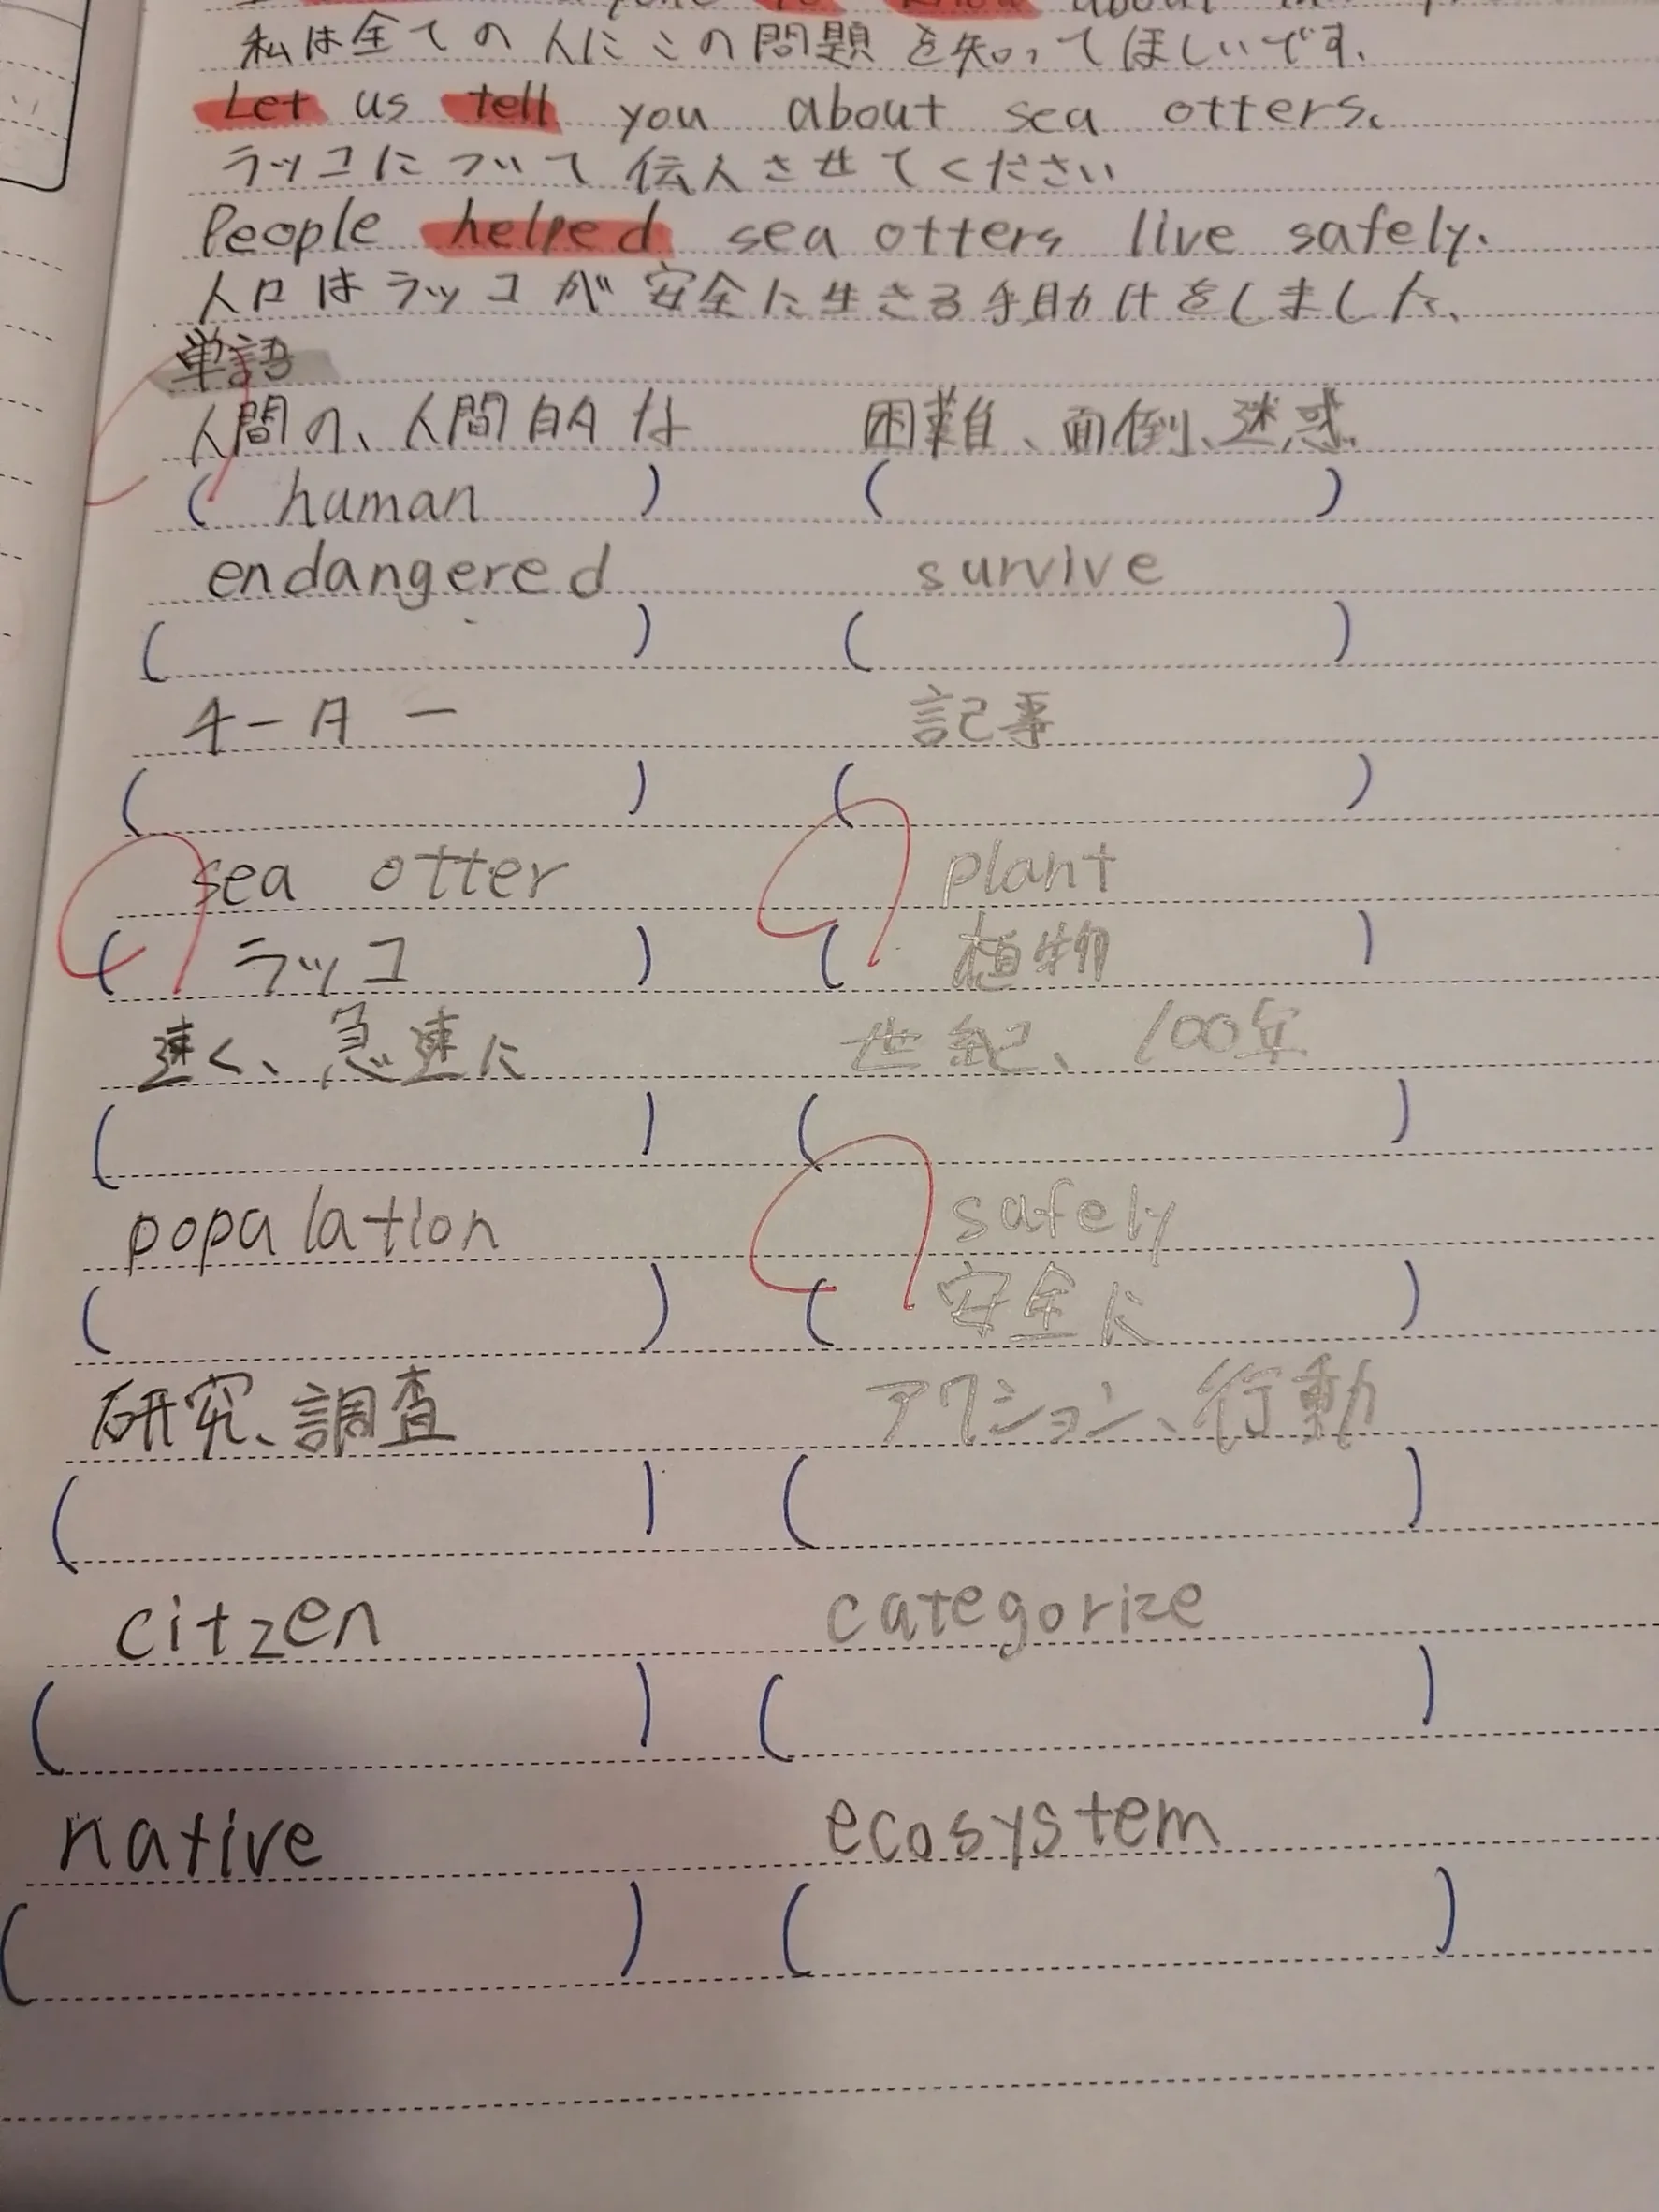 私は全ての人にこの問題を知ってほしいです.
Let us tell you about sea otters.
ラッコについて伝えさせてください
People helped sea otters live safely.
人口はラッコが安全に生きる手助けをしました、
単語
人間の、人間的な 困難、面倒、迷惑
( human ) ( )
endangered survive
( ) ( )
チーター 記事
( ) ( )
sea otter plant
( ラッコ ) ( 植物 )
速く、急速に 世紀、100年
( ) ( )
popalation safely
( ) ( 安全に )
研究、調査 アクション、行動
( ) ( )
citzen categorize
( ) ( )
native ecosystem
( ) ( )